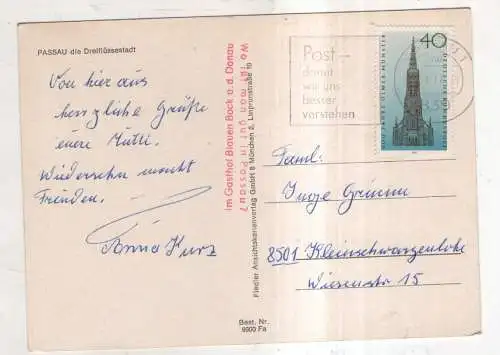 PASSAU die Dreiflüssestadt
Von hier aus
herzliche Grüße
eure Mutti.
Wiedersehn macht
Freuden.
Anna Kurz
Wo ißt man gut in Passau?
im Gasthof Blauen Bock a. d. Donau
Fiedler Ansichtskartenverlag GmbH 8 München 2, Linprunstraße 10
Best. Nr.
9900 Fa
Post –
damit
wir uns
besser
verstehen
40
600 JAHRE ULMER MÜNSTER
DEUTSCHE BUNDESPOST
Faml.
Inge Grimm
8501 Kleinschwarzenlohe
Wiesenstr 15